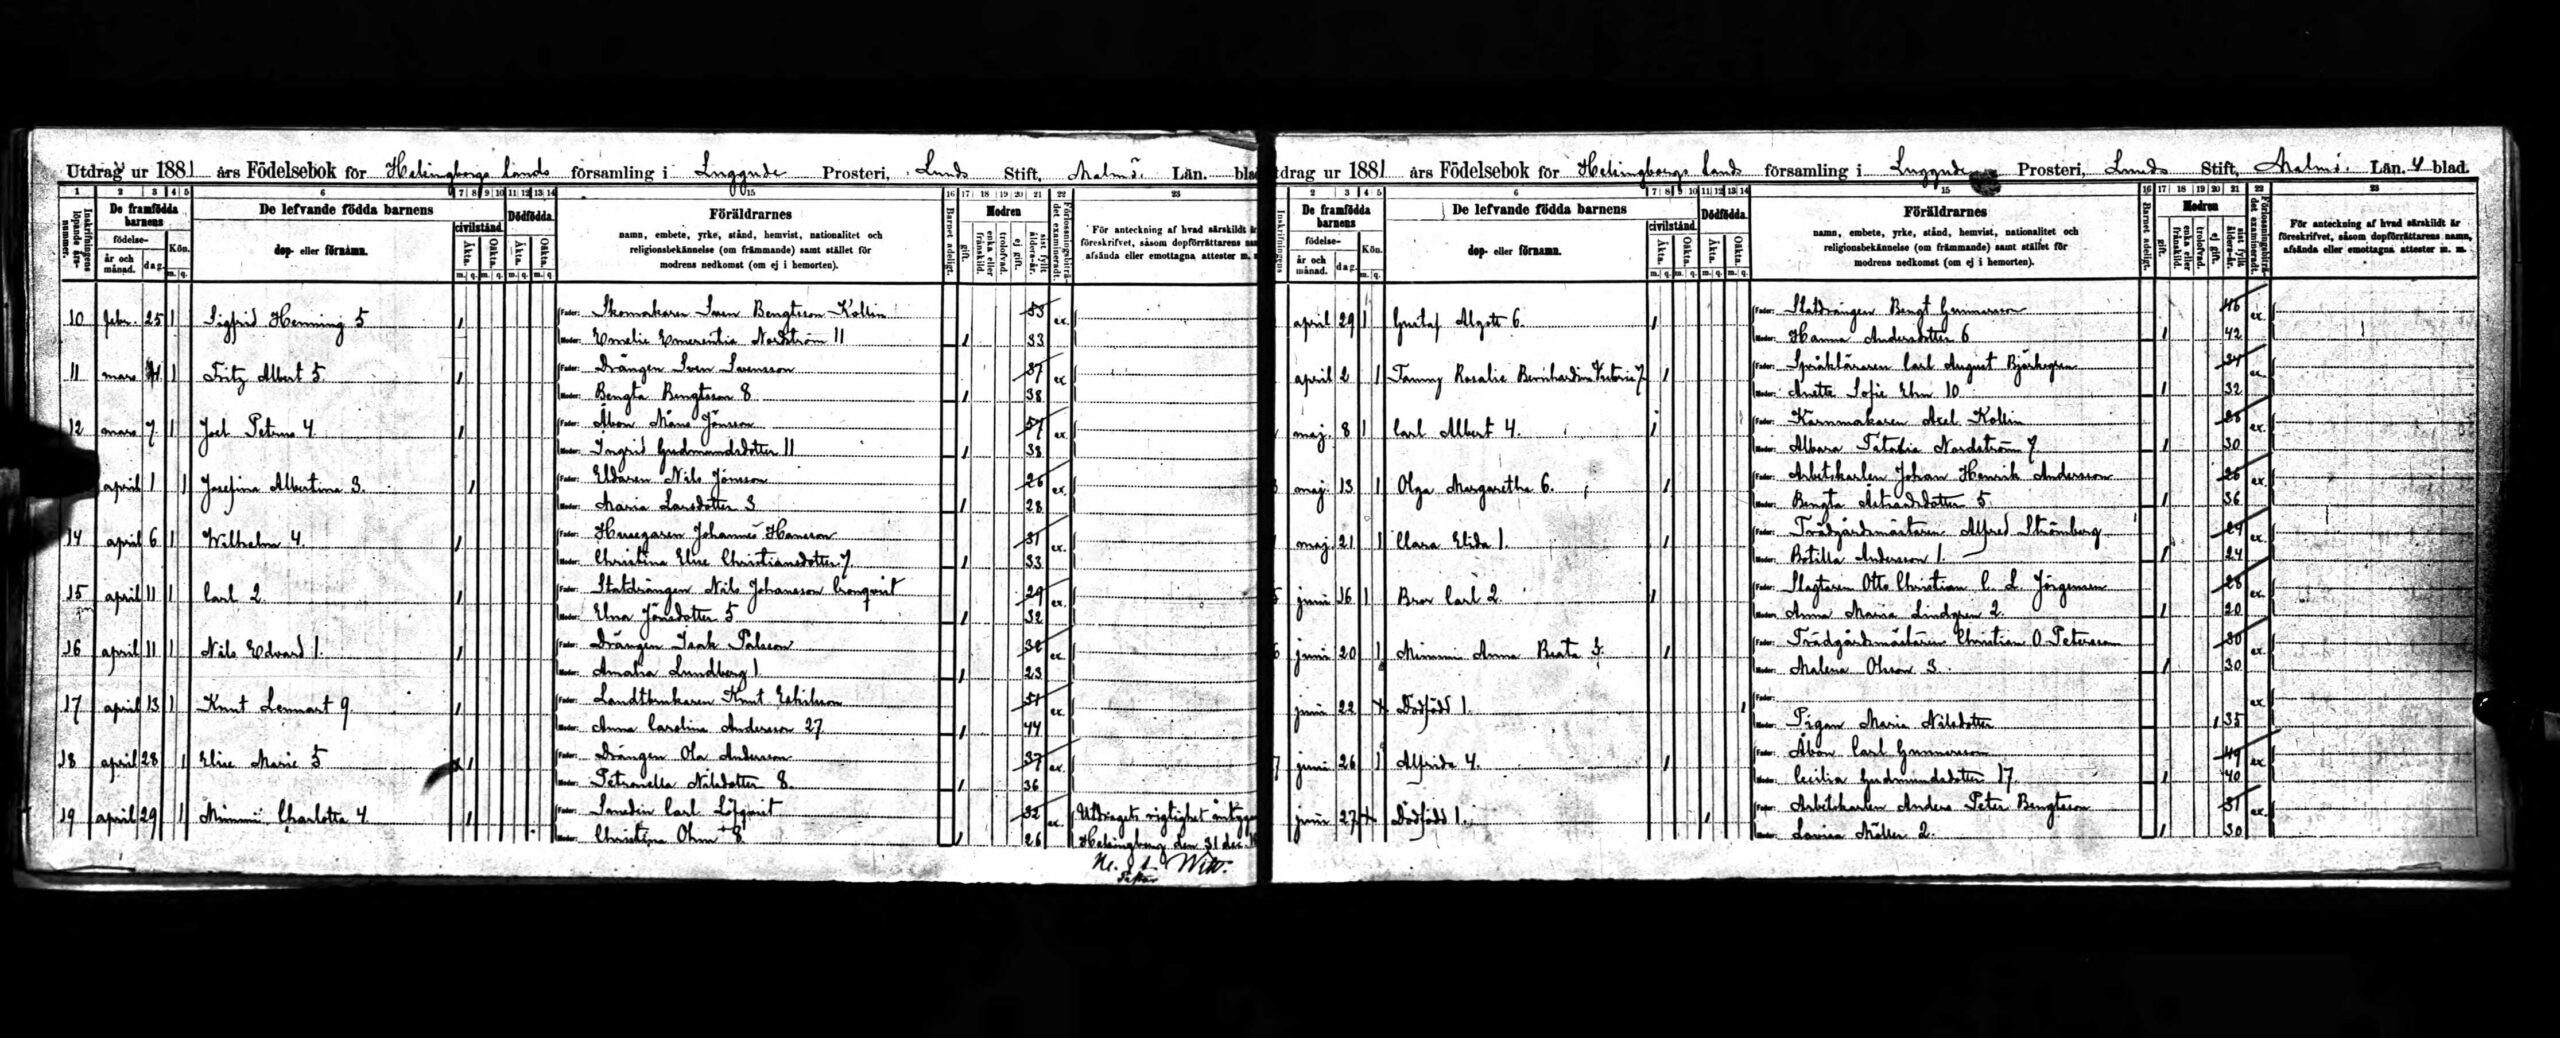 Utdrag ur 1881 års Födelsebok för Helsingborgs lands församling i Luggude Prosteri, Lunds Stift, Malmö Län. blad
1 2 3 4 5 6 7 8 9 10 11 12 13 14 15 16 17 18 19 20 21 22 23
Inskrifningens löpande års-nummer.
De framfödda barnens
födelse-
år och månad.
dag.
Kön.
m. q.
De lefvande födda barnens
dop- eller förnamn.
civilstånd.
Äkta. Oäkta.
Dödfödda.
Äkta. Oäkta.
Föräldrarnes
namn, embete, yrke, stånd, hemvist, nationalitet och
religionsbekännelse (om främmande) samt stället för
modrens nedkomst (om ej i hemorten).
Barnet adeligt.
Modren
gift.
enka eller frånskild.
trolofvad.
ej gift.
sist fylda ålders-år.
Förlossningsbiträdet examineradt.
För anteckning af hvad särskildt är
föreskrifvet, såsom dopförrättarens namn,
afsända eller emottagna attester m. m.
10 febr. 25 1 Sigfrid Henning 5 1 Fader: Skomakaren Sven Bengtsson Kollin 53 ex.
Moder: Emelie Emerentia Nordström 11 1 33
11 mars 1 Fritz Albert 5. 1 Fader: Drängen Sven Svensson 37 ex
Moder: Bengta Bengtsson 8 1 38
12 mars 7 1 Joel Petrus 4 1 Fader: Åbon Måns Jönsson 57 ex.
Moder: Ingrid Gudmundsdotter 11 1 38
april 1 1 Josefina Albertina 3. 1 Fader: Eldaren Nils Jönsson 26 ex.
Moder: Maria Larsdotter 3 1 28
14 april 6 1 Wilhelm 4. 1 Fader: Husegaren Johannes Hansson 31 ex.
Moder: Christina Elise Christiansdotter 7 1 33
15 april 11 1 Carl 2 1 Fader: Statdrängen Nils Johansson Cronqvist 29 ex.
Moder: Elna Jönsdotter 5 1 32
16 april 11 1 Nils Edvard 1. 1 Fader: Drängen Isak Pålsson 32 ex
Moder: Amalia Lundberg 1 1 23
17 april 13 1 Knut Lennart 9 1 Fader: Landtbrukaren Knut Eskilsson 51 ex.
Moder: Anna Carolina Andersson 27 1 44
18 april 28 1 Elise Marie 5 1 Fader: Drängen Ola Andersson 37 ex.
Moder: Petronella Nilsdotter 8. 1 36
19 april 29 1 Mimmi Charlotta 4 1 Fader: Smeden Carl Löfqvist 32 ex. Utdragets rigtighet intygar
Moder: Christina Ohm 8. 1 26 Helsingborg den 31 dec.
drag ur 1881 års Födelsebok för Helsingborgs lands församling i Luggude Prosteri, Lunds Stift, Malmö Län. 4 blad.
2 3 4 5 6 7 8 9 10 11 12 13 14 15 16 17 18 19 20 21 22 23
Inskrifningens
De framfödda barnens
födelse-
år och månad.
dag.
Kön.
m. q.
De lefvande födda barnens
dop- eller förnamn.
civilstånd.
Äkta. Oäkta.
Dödfödda.
Äkta. Oäkta.
Föräldrarnes
namn, embete, yrke, stånd, hemvist, nationalitet och
religionsbekännelse (om främmande) samt stället för
modrens nedkomst (om ej i hemorten).
Barnet adeligt.
Modren
gift.
enka eller frånskild.
trolofvad.
ej gift.
sist fylda ålders-år.
Förlossningsbiträdet examineradt.
För anteckning af hvad särskildt är
föreskrifvet, såsom dopförrättarens namn,
afsända eller emottagna attester m. m.
april 29 1 Gustaf Algott 6. 1 Fader: Statdrängen Bengt Gunnarsson 46 ex.
Moder: Hanna Andersdotter 6 1 42
april 2 1 Fanny Rosalie Bernhardina Victoria 7 1 Fader: Språkläraren Carl August Björkegren 34 ex.
Moder: Anette Sofie Ehn 10 1 32
maj. 8 1 Carl Albert 4. 1 Fader: Karnmakaren Axel Kollin 28 ex.
Moder: Nordström 7 1 30
maj. 13 1 Olga Margaretha 6. 1 Fader: Arbetskarlen Johan Henrik Andersson 26 ex.
Moder: Bengta Astrandsdotter 5. 1 36
maj. 21 1 Clara Elida 1. 1 Fader: Trädgårdsmästaren Alfred Strömberg 29 ex.
Moder: Botilla Andersson 1. 1 24
5 juni 16 1 Bror Carl 2. 1 Fader: Slagtaren Otto Christian C. L. Jörgensen 28 ex.
Moder: Anna Maria Lindgren 2. 1 20
6 juni 20 1 Mimmi Anna Beata 3. 1 Fader: Trädgårdsmästaren Christian O. Petersson 30 ex.
Moder: Malena Olsson 3. 1 30
juni 22 + Dödfödd 1. 1 Fader: ex
Moder: Pigan Maria Nilsdotter 1 35
7 juni 26 1 Alfrida 4. 1 Fader: Åbon Carl Gunnarsson 49 ex
Moder: Cecilia Gudmundsdotter 17. 1 40
juni 27 + Dödfödd 1. 1 Fader: Arbetskarlen Anders Peter Bengtsson 31 ex.
Moder: Lovisa Möller 2. 1 30